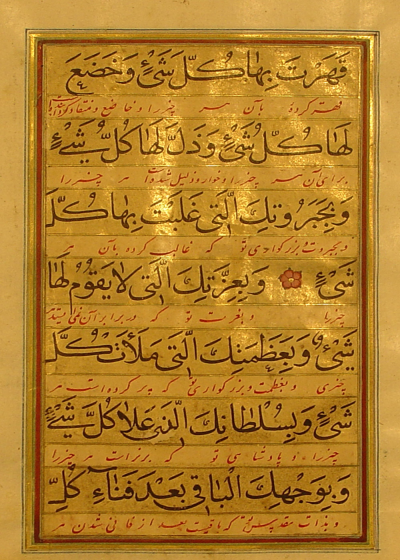 قَهَرْتَ بِهَا كُلَّ شَيْءٍ وَخَضَعَ
قهر کرده بآن هر چیز را و خاضع و منقاد
لَهَا كُلُّ شَيْءٍ وَذَلَّ لَهَا كُلُّ شَيْءٍ
برای آن هر چیز را و خوار و ذلیل شده است هر چیز را
وَبِجَبَرُوتِكَ الَّتِي غَلَبْتَ بِهَا كُلَّ
بزرگواری تو که غالب کرده بآن هر
شَيْءٍ وَبِعِزَّتِكَ الَّتِي لَا يَقُومُ لَهَا
چیز را و بعزت تو که در برابر آن
شَيْءٌ وَبِعَظَمَتِكَ الَّتِي مَلَأَتْ كُلَّ
چیزی و بعظمت و بزرگواری تو که پر کرده است هر
شَيْءٍ وَبِسُلْطَانِكَ الَّذِي عَلَا كُلَّ شَيْءٍ
چیز را و پادشاهی تو که برتر است هر چیز را
وَبِوَجْهِكَ الْبَاقِي بَعْدَ فَنَاءِ كُلِّ
و بذات مقدس تو که باقیست بعد از فانی شدن هر